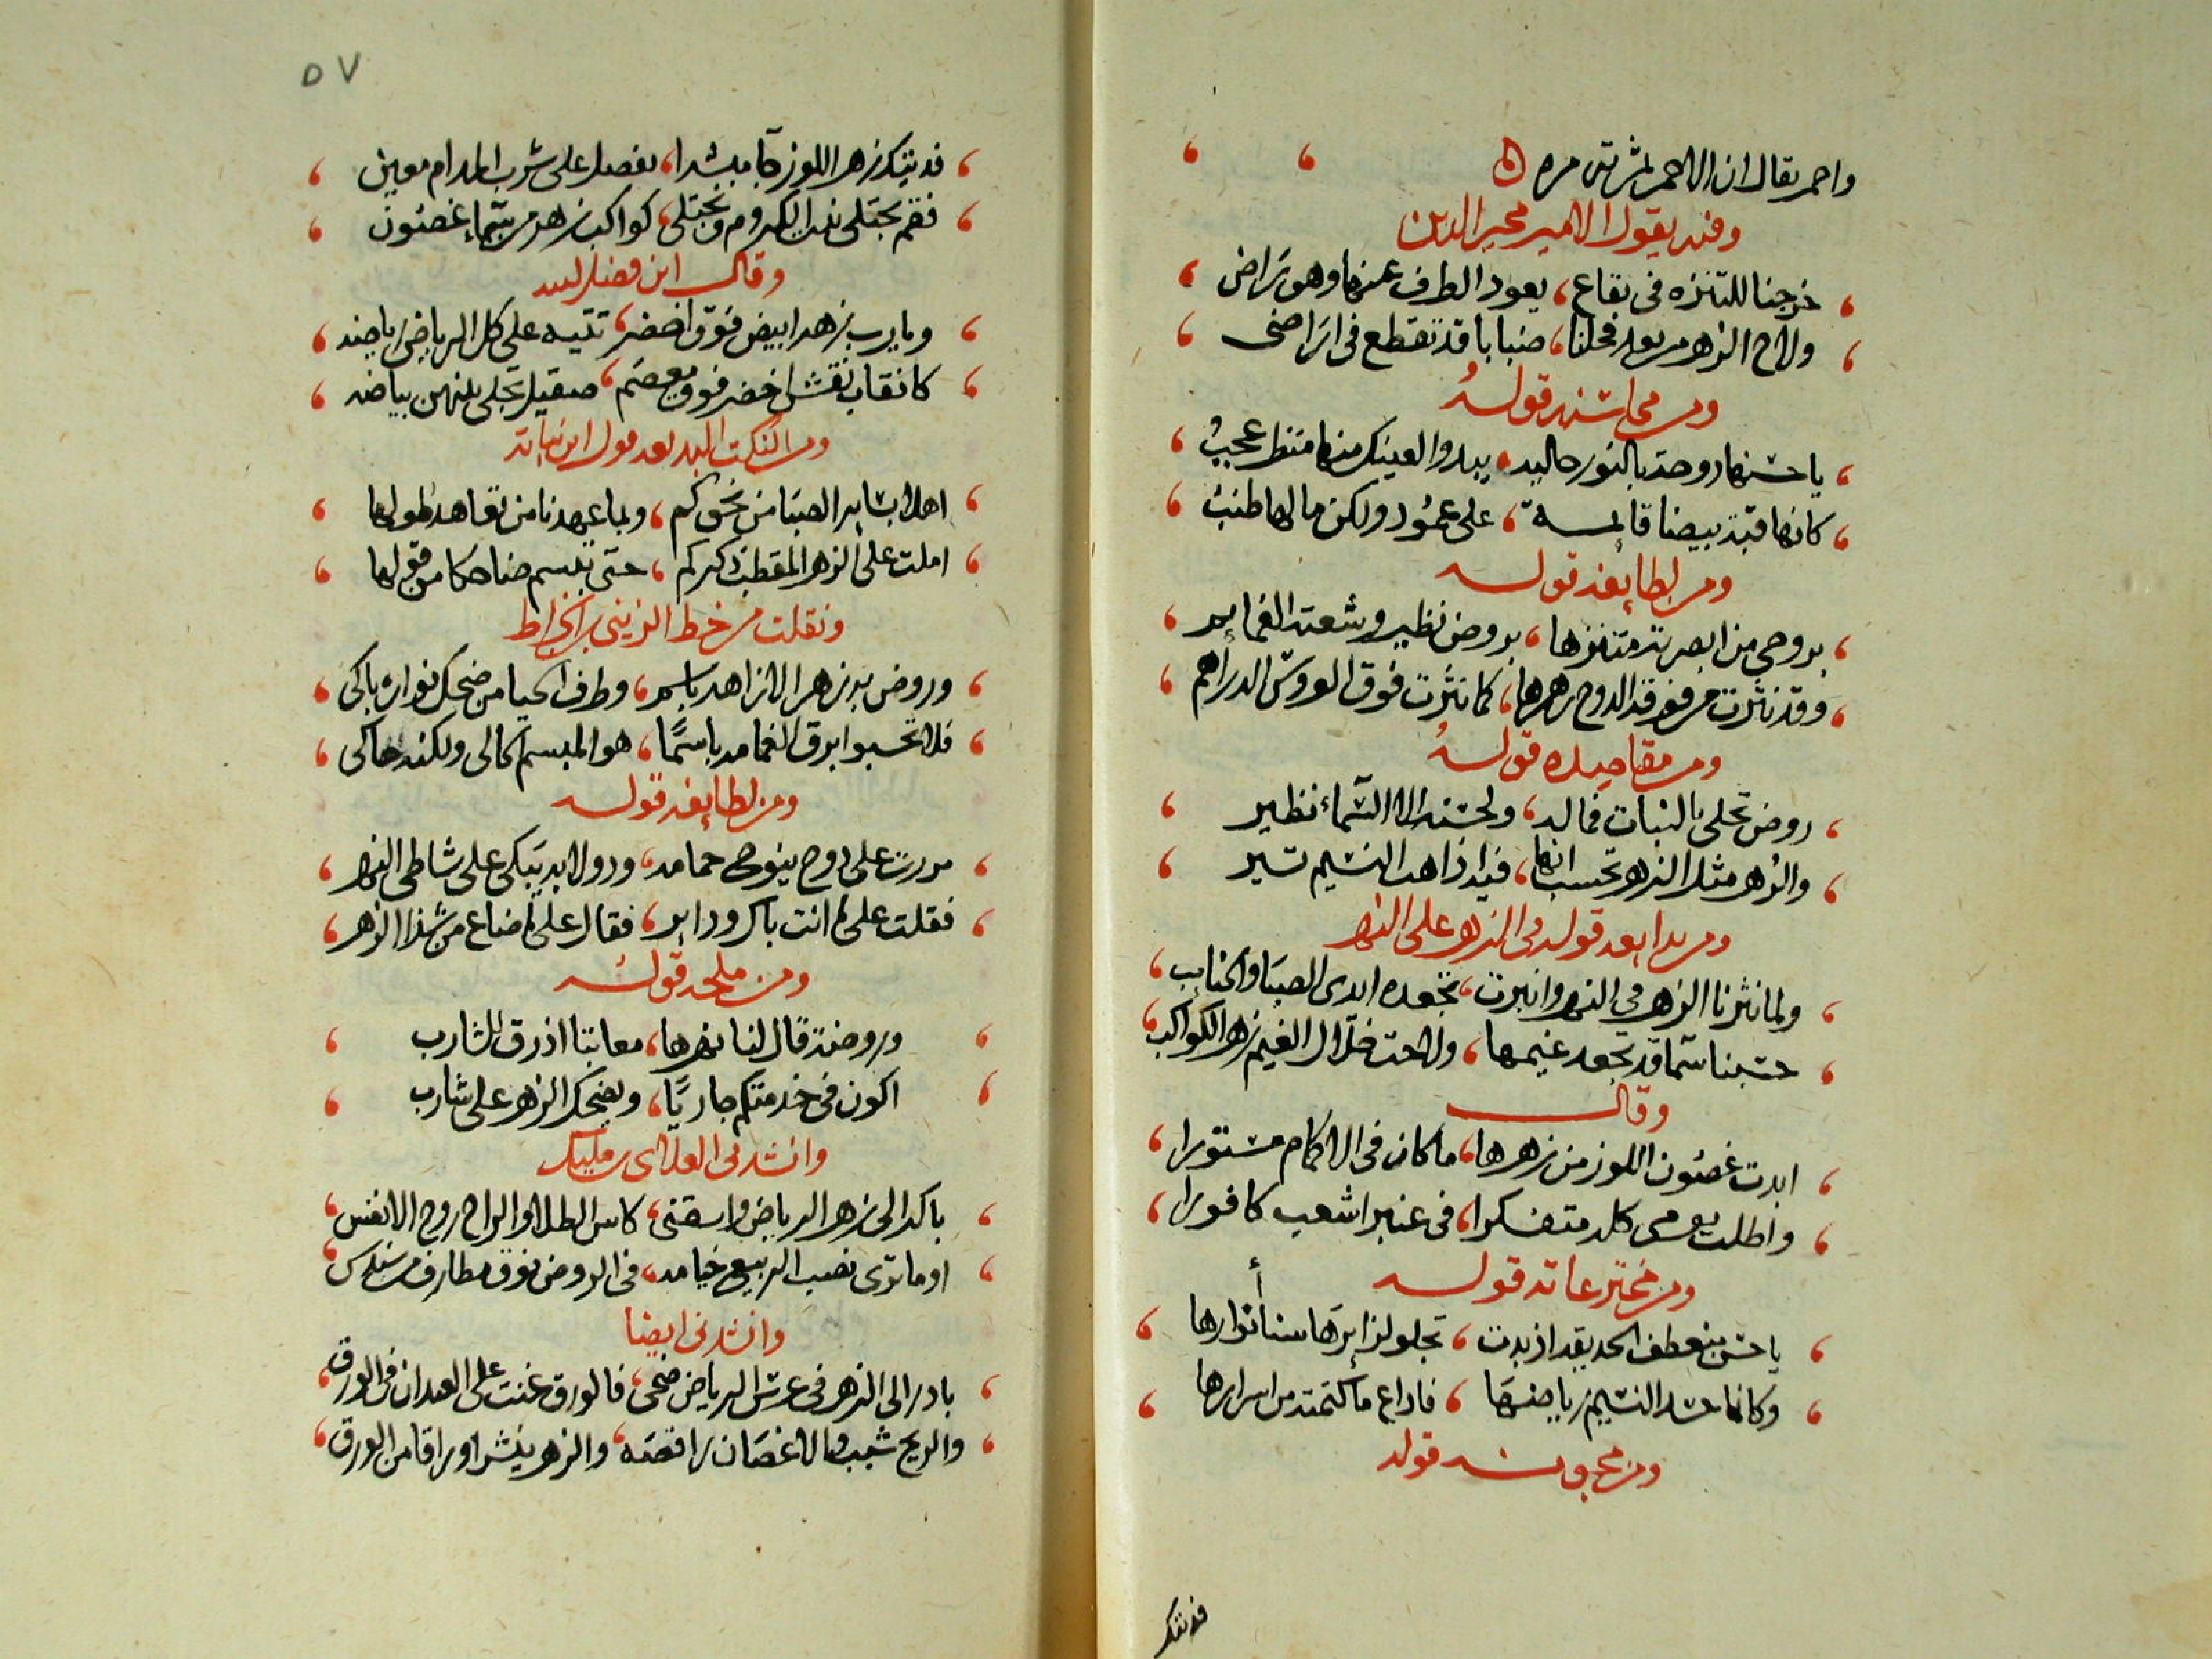 واحمر يقال ان الاحمر يثمر مرتين مره
وفيه يقول الامير مجير الدين
خرجنا للتنزه فى بقاع، يعود الطرف عنها وهو راض
ولاح الزهر من بعد فخلنا، ضبابا قد تقطع فى اراضى
ومن محاسنه قوله
يا حسنها دوحة بالنور حاليه، يبدوا لعينك منها منظر عجب
كانها قبة بيضا قائمة، على عمود ولكن ما لها طنب
ومن لطايفه قوله
بروحي من ابصرته متنزها، بروض نظير وشعته الغمايم
وقد نثرت من فوقه الدوح زهرها، كما نثرت فوق العروس الدراهم
ومن مقاصده قوله
روض تحلى بالنبات فماله، ولحسنه الا السماء نظير
والزهر مثل الزهر تحسب انها، فيه اذا هب النسيم تسير
ومن بدايعه قوله فى الزهر على النهر
ولما نثرنا الزهر في النهر وانبرت، تجعده ايدى الصبا والجنايب
حسبنا سما قد تجعد غيمها، ولاحت خلال الغيم زهر الكواكب
وقال
ابدت غصون اللوز من زهرها، ما كان فى الاكمام مستورا
واطلت يومى كله متفكرا، فى عنبر اشعب كافورا
ومن مخترعاته قوله
يا حسن منعطف الحديقه اذ بدت، تجلو لزايرها سنا أنوارها
وكانما حشد النسيم رياضها، فاذاع ما كتمته من اسرارها
ومن مجونه قوله
فديتك
٥٧
فديتك زهر اللوز جا مبشرا، بفصل على شرب المدام معين
فقم نجتلى بنت الكروم ونجتلى، كواكب زهر من سماء غصون
وقال ابن فضل الله
ويا رب زهر ابيض فوق اخضر، تتيه على كل الرياض رياضه
كانقاب نقش اخضر فوق معصم، صقيل تجلى بينهن بياضه
ومن النكت البديعه قول ابن نباته
اهلا بشاير الصبا من نحوكم، وبما عهدنا من تعاهد طولها
املت على الزهر المقطب ذكركم، حتى تبسم ضاحكا من قولها
ونقلت من خط الزينى بن الخراط
وروض به زهر الازاهر باسم، وطرف الحيا من ضحك نواره باكى
فلا تحسبوا برق الغمامه باسما، هو المبسم الحالى ولكنه حاكى
ومن لطايفه قوله
مررت على دوح ينوح حمامه، ودولابه يبكى على شاطى النهر
فقلت على م انت باك وداير، فقال على ما ضاع من شذا الزهر
ومن ملحه قوله
وروضة قال لنا نهرها، معاتبا اذ رق للشارب
اكون فى خدمتكم جاريا، ويضحك الزهر على شارب
وانشدنى العلاى بن مليك
باكر الى زهر الرياض واسقنى، كاس الطلا والراح روح الانفس
اوما ترى نصب الربيع خيامه، فى الروض فوق مطارف من سندس
وانشدنى ايضا
بادر الى الزهر فى عرش الرياض ضحى، فالورق غنت على العيدان فى الورق
والريح شبب والاغصان راقصه، والزهر ينثر اوراقا من الورق